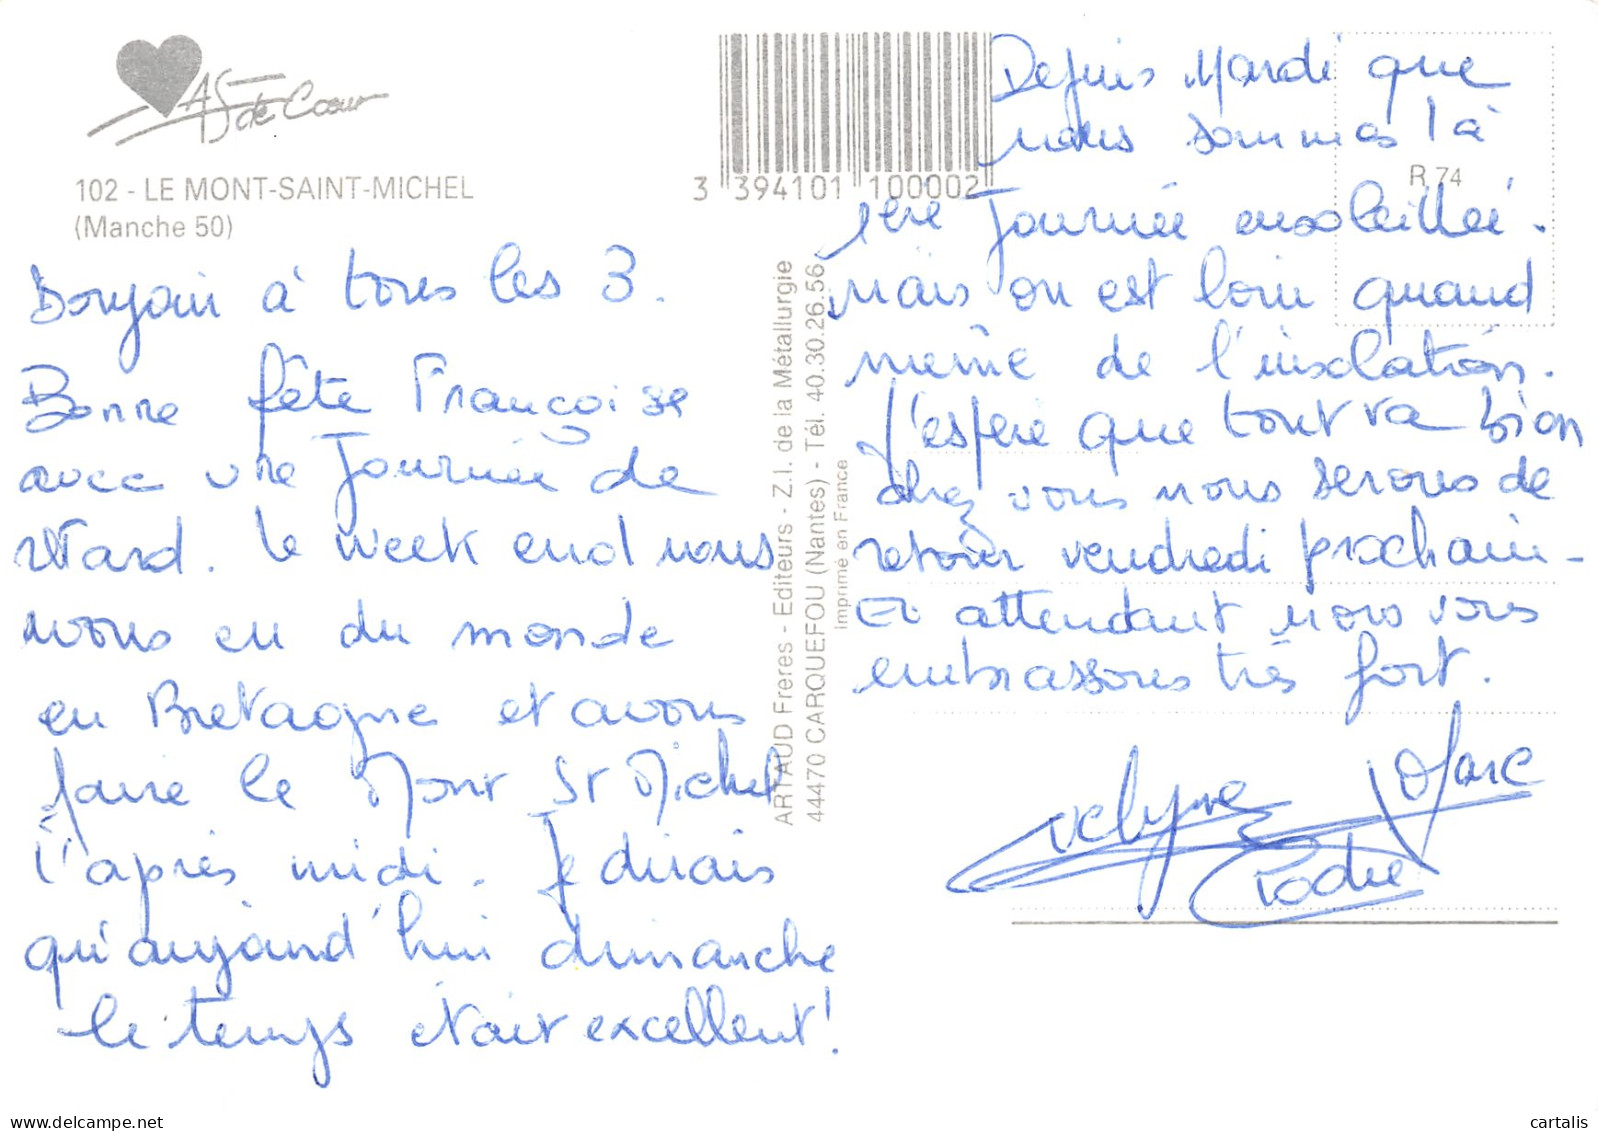 AS de Cœur
102 - LE MONT-SAINT-MICHEL
(Manche 50)
3 394101 100002
R 74
Bonjour à tous les 3.
Bonne fête Françoise
avec une Journée de
retard. le week end nous
avons eu du monde
en Bretagne et avons
faire le Mont St Michel
l'après midi. Je dirais
qu'aujourd'hui dimanche
le temps était excellent!
ARTAUD Frères - Editeurs - Z.I. de la Métallurgie
44470 CARQUEFOU (Nantes) - Tél. 40.30.26.56
Imprimé en France
Depuis Mardi que
nous sommes là
1ère Journée ensoleillée.
mais on est loin quand
même de l'insolation.
J'espère que tout va bien
chez vous nous serons de
retour vendredi prochain -
En attendant nous vous
embrassons très fort.
Evelyne Marc
cartalis
delcampe.net